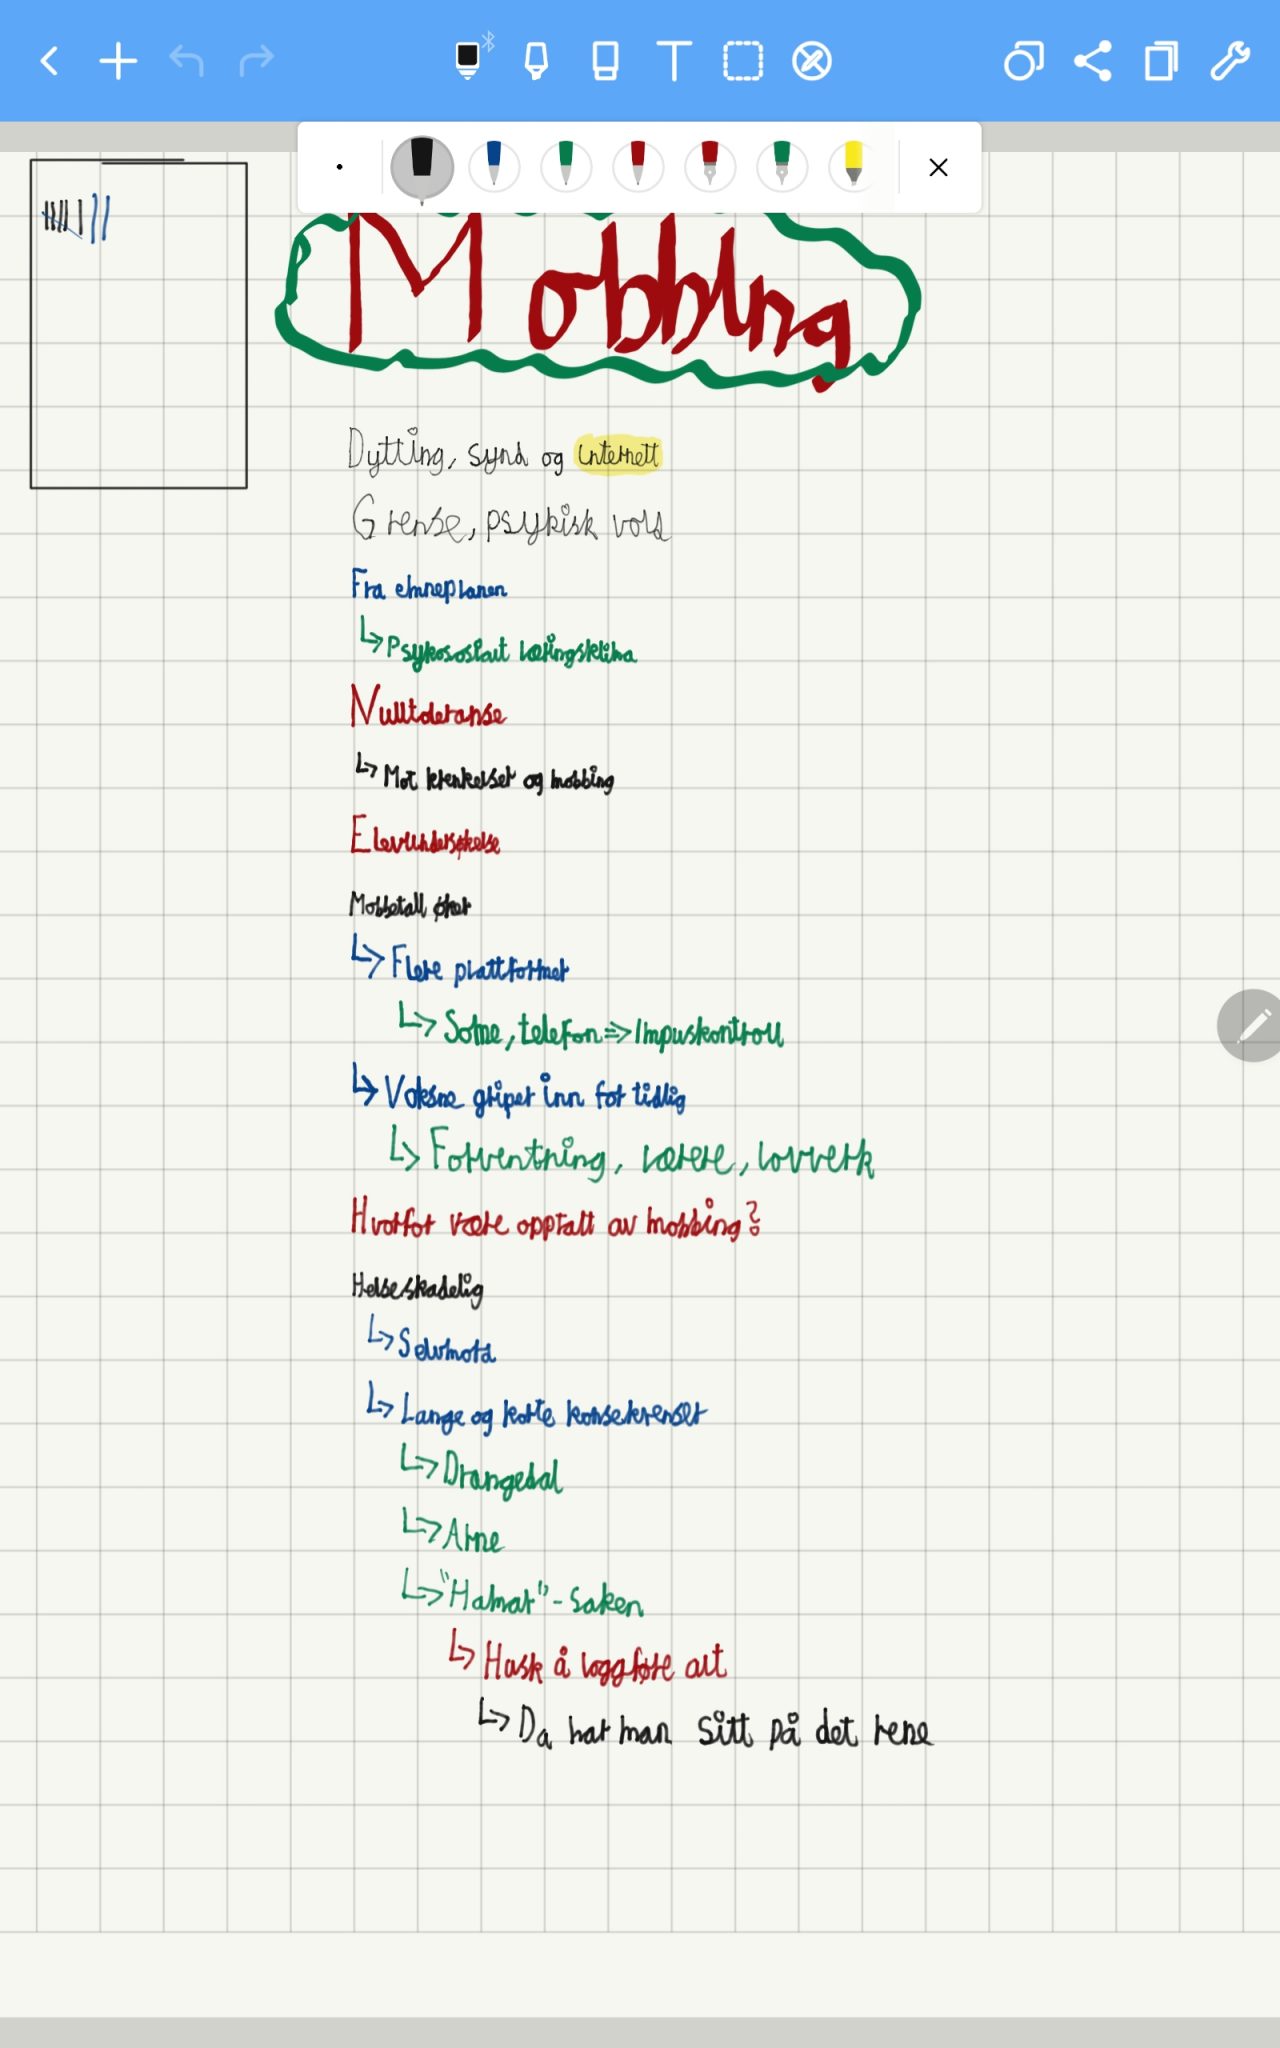 Mobbing
Dytting, synd og internett
Grense, psykisk vold
Fra emneplanen
↳ Psykososialt læringsklima
Nulltoleranse
↳ Mot krenkelser og mobbing
Elevundersøkelse
Mobbetall øker
↳ Flere plattformer
↳ Some, telefon => Impulskontroll
↳ Voksne griper inn for tidlig
↳ Forventning, lærere, lovverk
Hvorfor være opptatt av mobbing?
Helseskadelig
↳ Selvmord
↳ Lange og korte konsekvenser
↳ Drangedal
↳ Arne
↳ "Hamar"-saken
↳ Husk å loggføre alt
↳ Da har man sitt på det rene